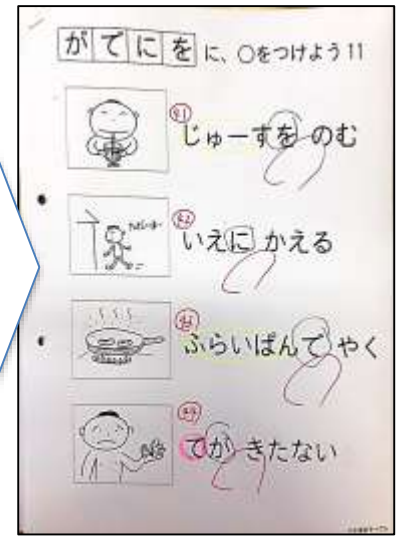 がでにをに、○をつけよう11
じゅーすをのむ
いえにかえる
ふらいぱんでやく
てがきたない